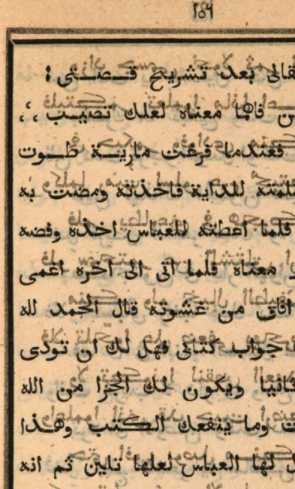 ٢٥٩
بعد تشريح قصتى :
فافهم معناه لعلك تصيب ،،
فعندما فرغت مارية طوت
للداية فاخذته ومضت به
فلما اعطته للعباس اخذه وفضه
معناه فلما اتى الى اخره اغمى
افاق من غشوته قال الحمد لله
جواب كتابى فهل لك ان تودى
ثانيا ويكون لك اجرا من الله
وما ينفعك الكتب وهذا
لها العباس لعلها تلين ثم انه